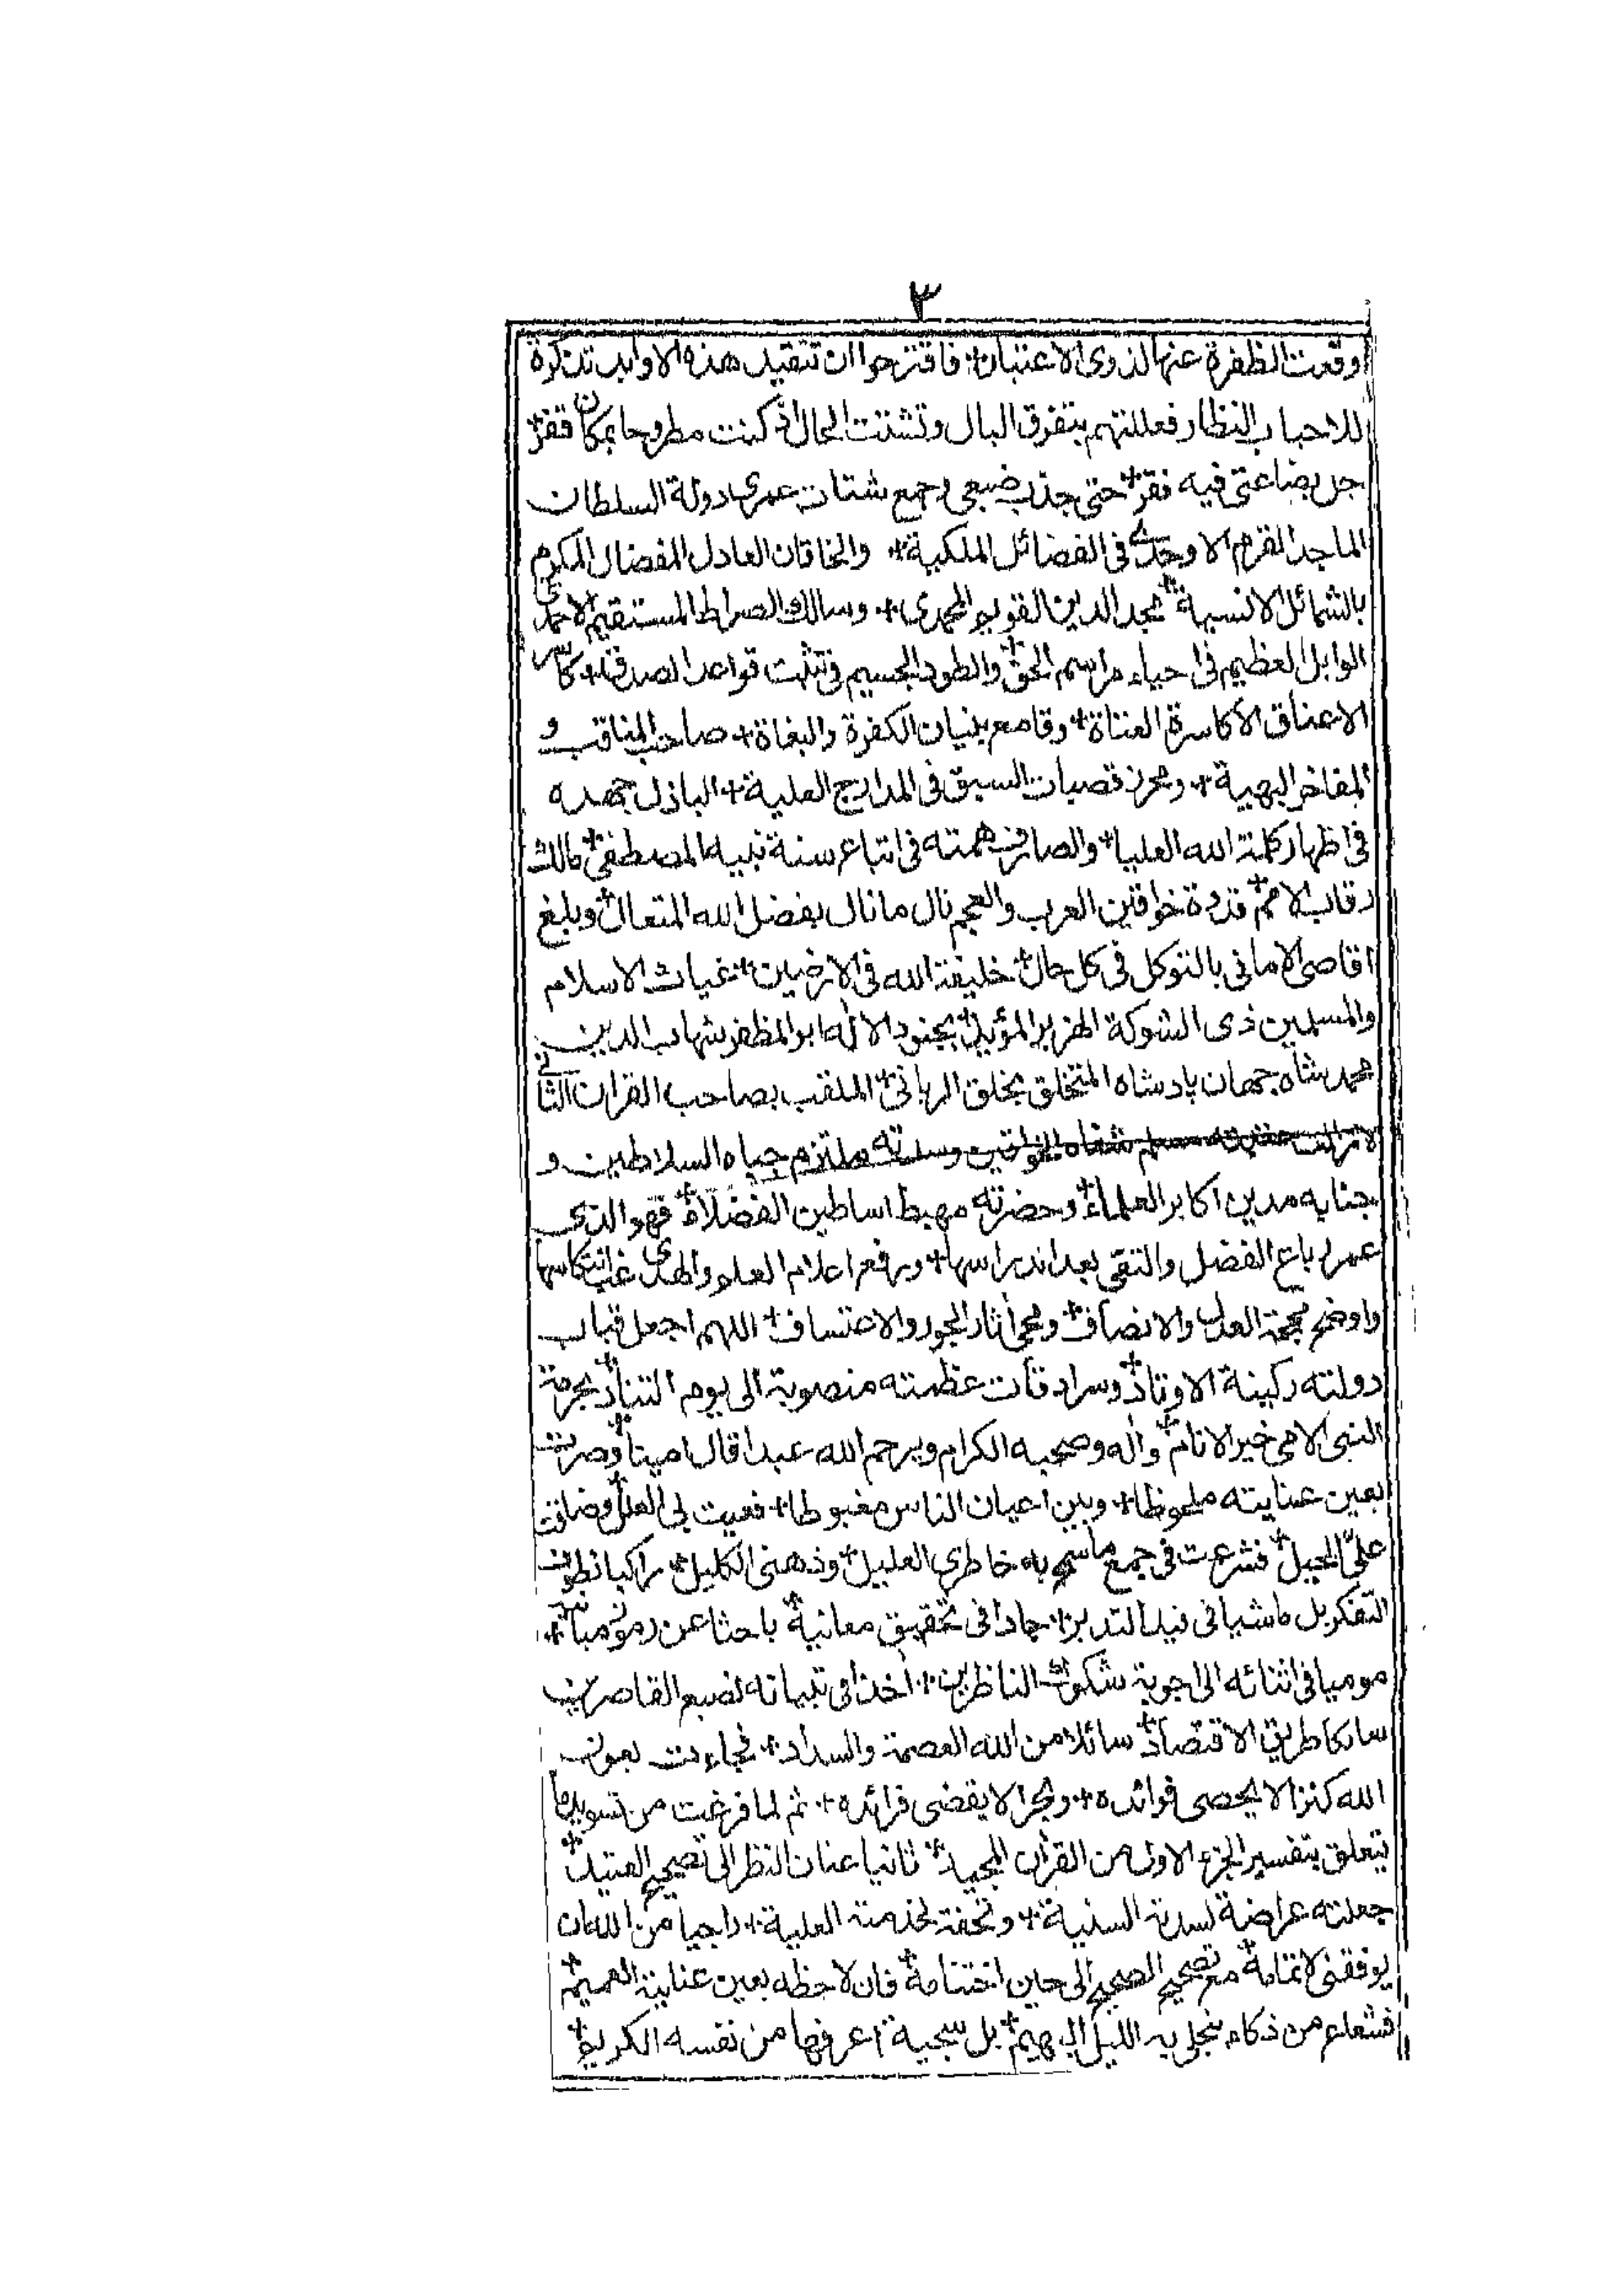 ٣
وقعت الظفرة عنها لذوى الاعتبار فاقترحوا ان تتقيد هذه الاوابد تذكرة
للاحباب النظار فعللتهم بتفرق البال وتشتت الحال اذ كنت مطروحا بمكان قفر
جل بضاعتى فيه فقر حتى جذب ضبعى وجمع شتات عمرى دولة السلطان
الماجد القرم الاوحد فى الفضائل الملكية والخاقان العادل المفضال المكرم
بالشمائل الانسية مجد الدين القويم المحمدى وسالك الصراط المستقيم الاحمدى
الوابل العظيم فى احياء مراسم الحق والطود الجسيم فى تثبت قواعد الصدق كاسر
الاعناق الاكاسرة العتاة وقامع بنيان الكفرة والبغاة صاحب المناقب و
المفاخر البهية ومحرز قصبات السبق فى المدارج العلية الباذل جهده
فى اظهار كلمة الله العليا والصارف همته فى اتباع سنة نبيه المصطفى مالك
رقاب الامم قدوة خواقين العرب والعجم نال ما نال بفضل الله المتعال وبلغ
اقاصى الامانى بالتوكل فى كل حال خليفة الله فى الارضين غياث الاسلام
والمسلمين ذى الشوكة الهزبر المؤيد بجنود الاله ابو المظفر شهاب الدين
محمد شاه جهان بادشاه المتخلق بخلق الربانى الملقب بصاحب القران الثانى
لا زالت شفاه الخواقين وسدته ملتزم جباه السلاطين و
جنابه مدين اكابر العلماء وحضرته مهبط اساطين الفضلاء فهو الذى
عمر رباع الفضل والتقى بعد اندراسها ورفع اعلام العلم والهدى غب انتكاسها
واوضح محجة العدل والانصاف ومحى أثار الجور والاعتساف اللهم اجعل قباب
دولته ركينة الاوتاد وسرادقات عظمته منصوبة الى يوم التناد بحرمة
النبى الامى خير الانام وأله وصحبه الكرام ويرحم الله عبدا قال امينا وصرت
بعين عنايته ملحوظا وبين اعيان الناس مغبوطا فعيت بى العلل وضاقت
علىّ الحيل فشرعت فى جمع ما سمح به خاطرى العليل وذهنى الكليل راكبا
التفكر بل ماشيا فى التدبر جادا فى تحقيق معانيه باحثا عن رموز مبانيه
موميا فى اثنائه الى اجوبة شكوك الناظرين أخذا فى تلبياته لضبع القاصرين
سالكا طريق الاقتصاد سائلا من الله العصمة والسداد فجاءت بعون
الله كنزا لا يحصى فوائده وبحرا لا يقضى فرائده ثم لما فرغت من تسويد ما
يتعلق بتفسير الجزء الاول من القرأن المجيد ثانيا عنان النظر الى تصحيح العتيد
جعلته عراضة لسدته السنية وتحفة لخدمته العلية راجيا من الله ان
يوفقنى لاتمامه مع تصحيح الصحيح الى حين اختتامه فان لاحظه بعين عنايته العميم
فشعاع من ذكاء ينجلى به الليل البهيم بل سجية اعرفها من نفسه الكريم